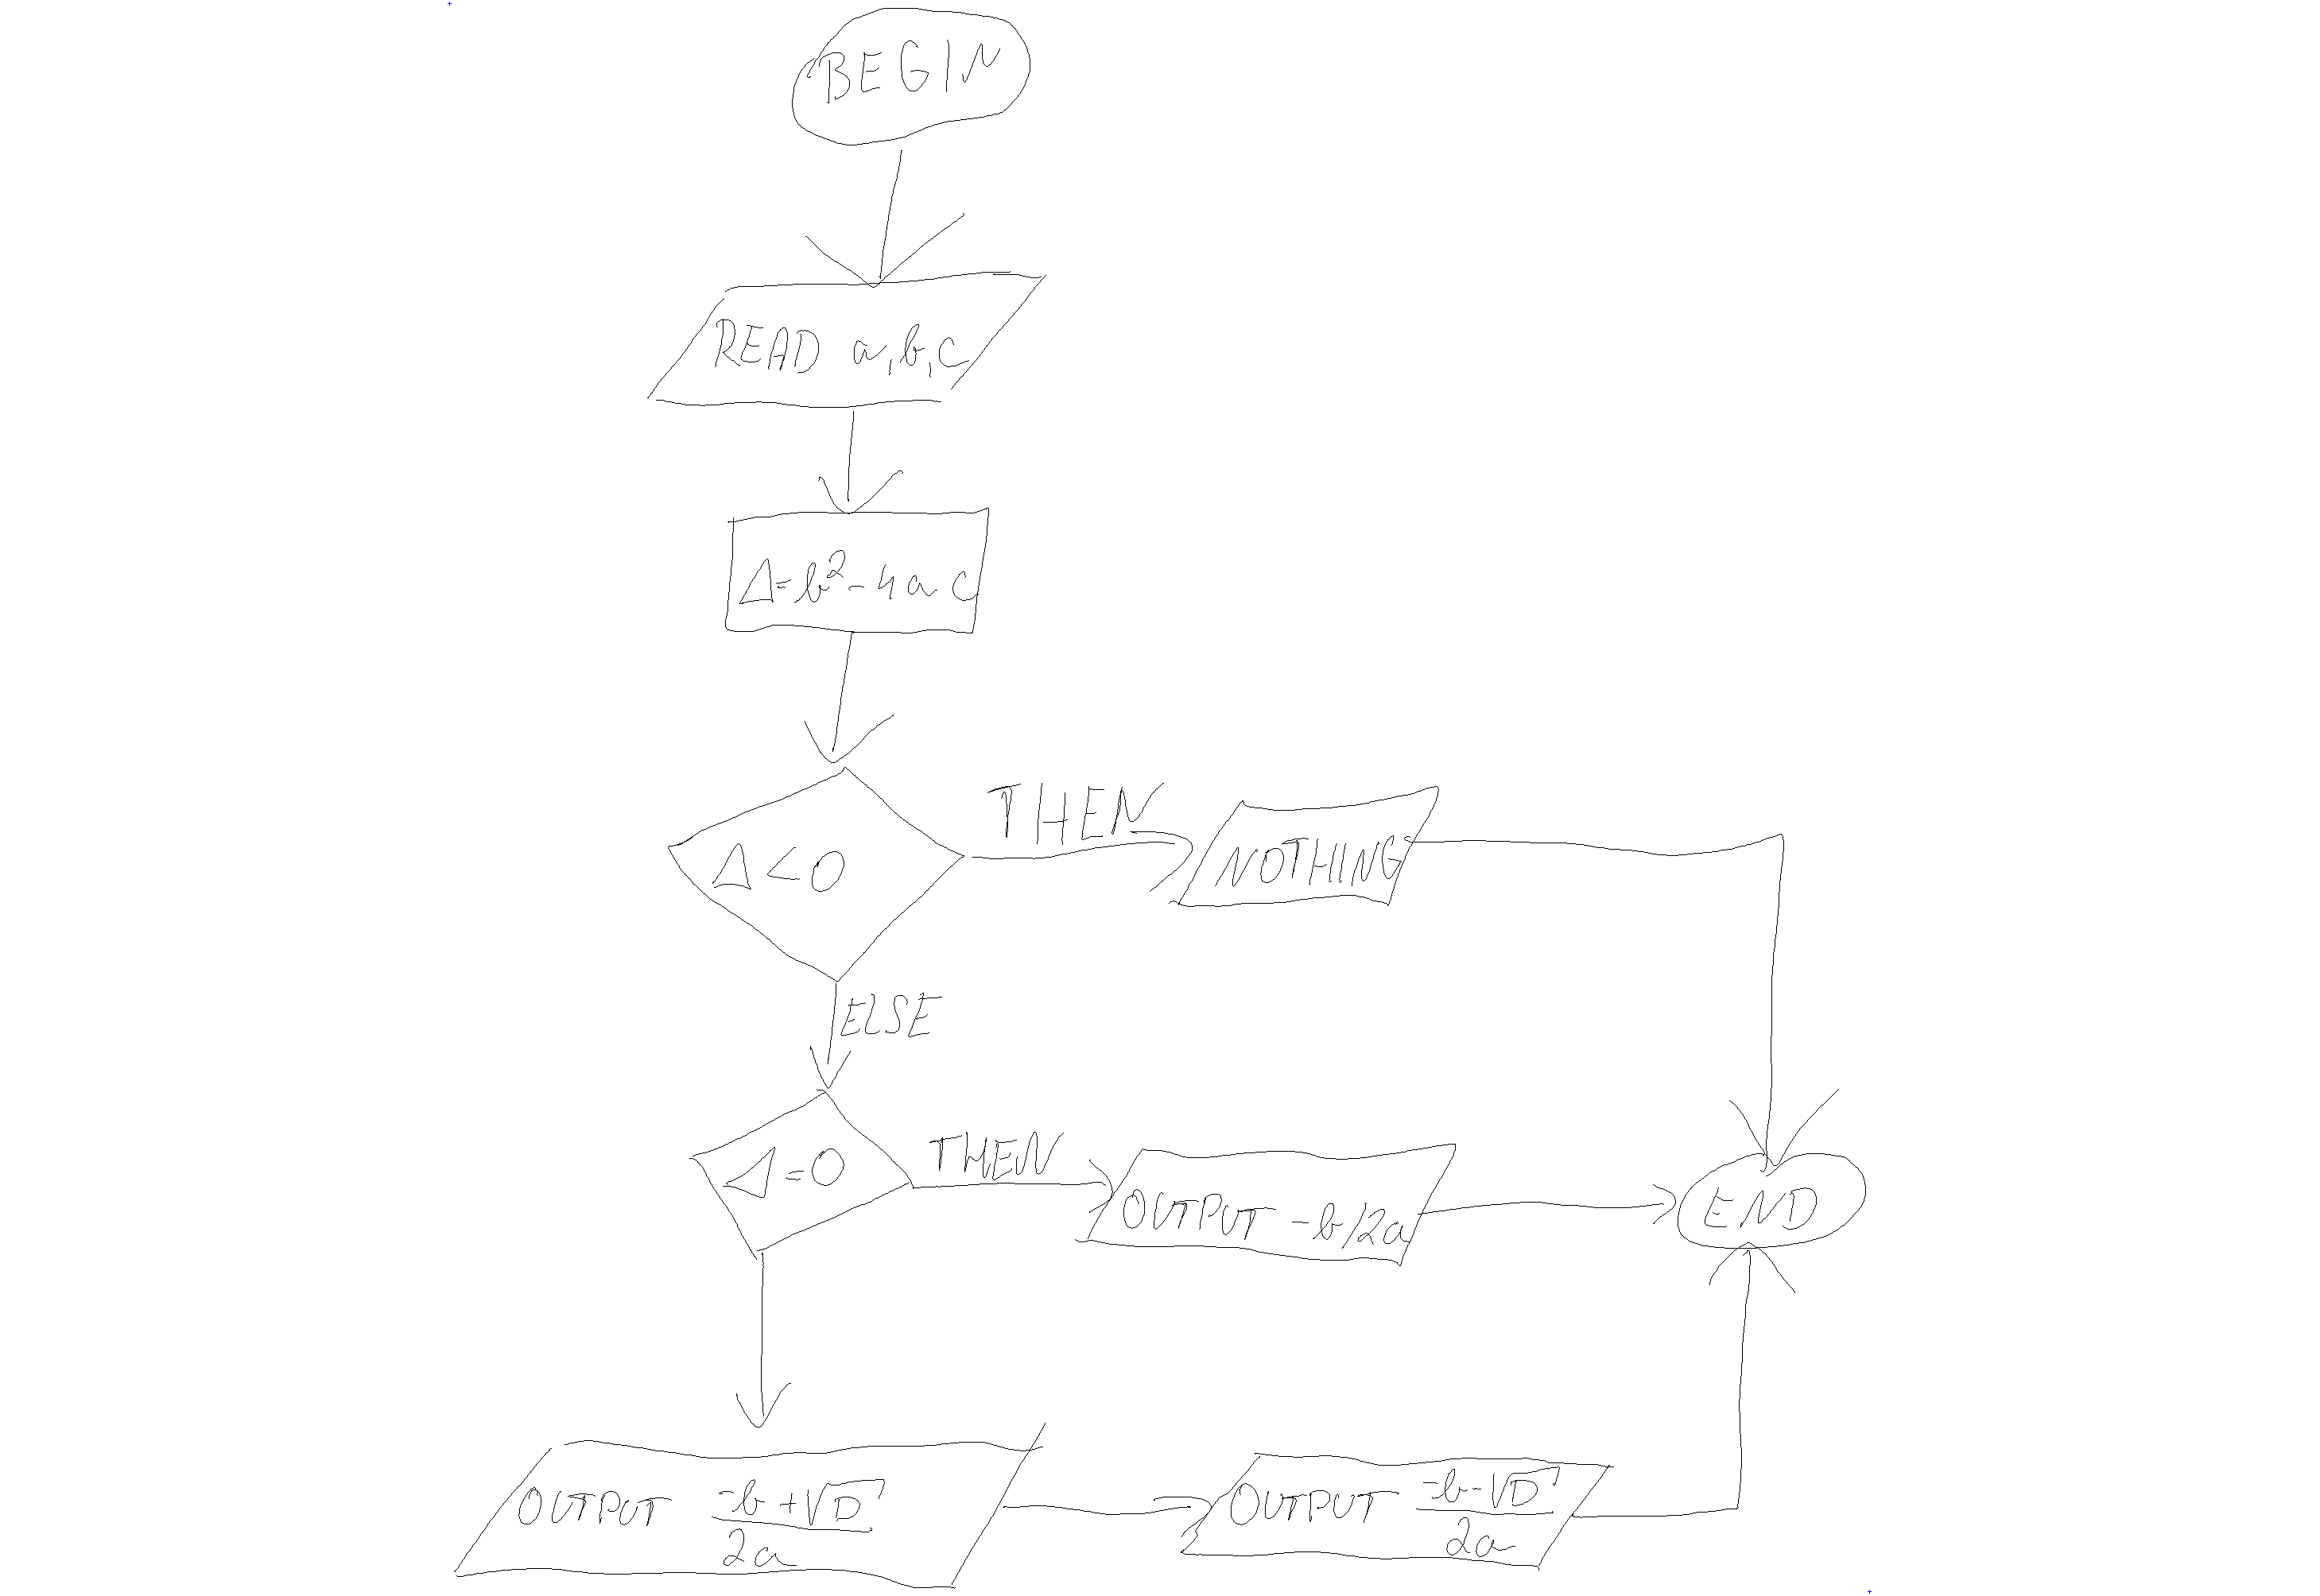 BEGIN
READ a, b, c
Δ=b²-4ac
Δ<0
THEN
NOTHING
ELSE
Δ=0
THEN
OUTPUT -b/2a
END
OUTPUT (-b+√D)/2a
OUTPUT (-b-√D)/2a